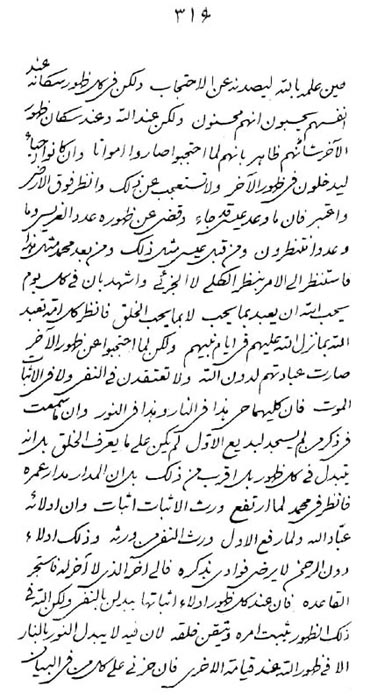 ٣١٤
من علمه بالله ليصدنه عن الاحتجاب ولكن فى كل ظور سكانه عند
انفسهم يحسبون انهم محسنون ولكن عند الله وعند سكان ظهور
الآخر شأنهم ظاهر بانهم لما احتجبوا صاروا امواتا وان كانوا احياء
ليدخلون فى ظهور الآخر ولا تستعجب عن ذلك وانظر فوق الارض
واعتبر فان ما وعد عيسى قد جاء وقضى عن ظهوره عدد الغرس وما
وعدوا منتظرون ومن قبل عيسى مثل ذلك ومن بعد محمد مثل هذا
فاستنظر الى الامر بنظر الكلى لا الجزئى واشهد بان فى كل يوم
يحب الله ان يعبد بما يحب لا بما يحب الخلق فانظر كل امة تعبد
الله بما نزل الله عليهم فى ايام نبيهم ولكن لما احتجبوا عن ظهور الآخر
صارت عبادتهم لدون الله ولا تعتقدن فى النفى ولا فى الاثبات
الموت فان كليهما حى هذا فى النار وهذا فى النور وان سمعت
ذكر من لم يسجد لبديع الاول لم يكن على ما يعرف الخلق بل انه
يتبدل فى كل ظهور بل اقرب من ذلك بل ان المدار مدار عمره
فانظر فى محمد لما ارتفع ورث الاثبات اثبات وان ادلائه
عباد الله ولما رفع الاول ورث النفى من ورثه وذلك ادلاء
دون الرحمن لا يرضى فوادى بذكره فالى آخر الذى لا آخر له فاستجر
القاعده فان عند كل ظهور ادلاء اثباتها يبدلن بالنفى ولكن الله فى
ذلك الظهور يثبت امره ويتقن خلقه لان فيه لا يبدل النور بالنار
الا فى ظهور الله عند قيامة الاخرى فان حزنى على كل من فى البيان